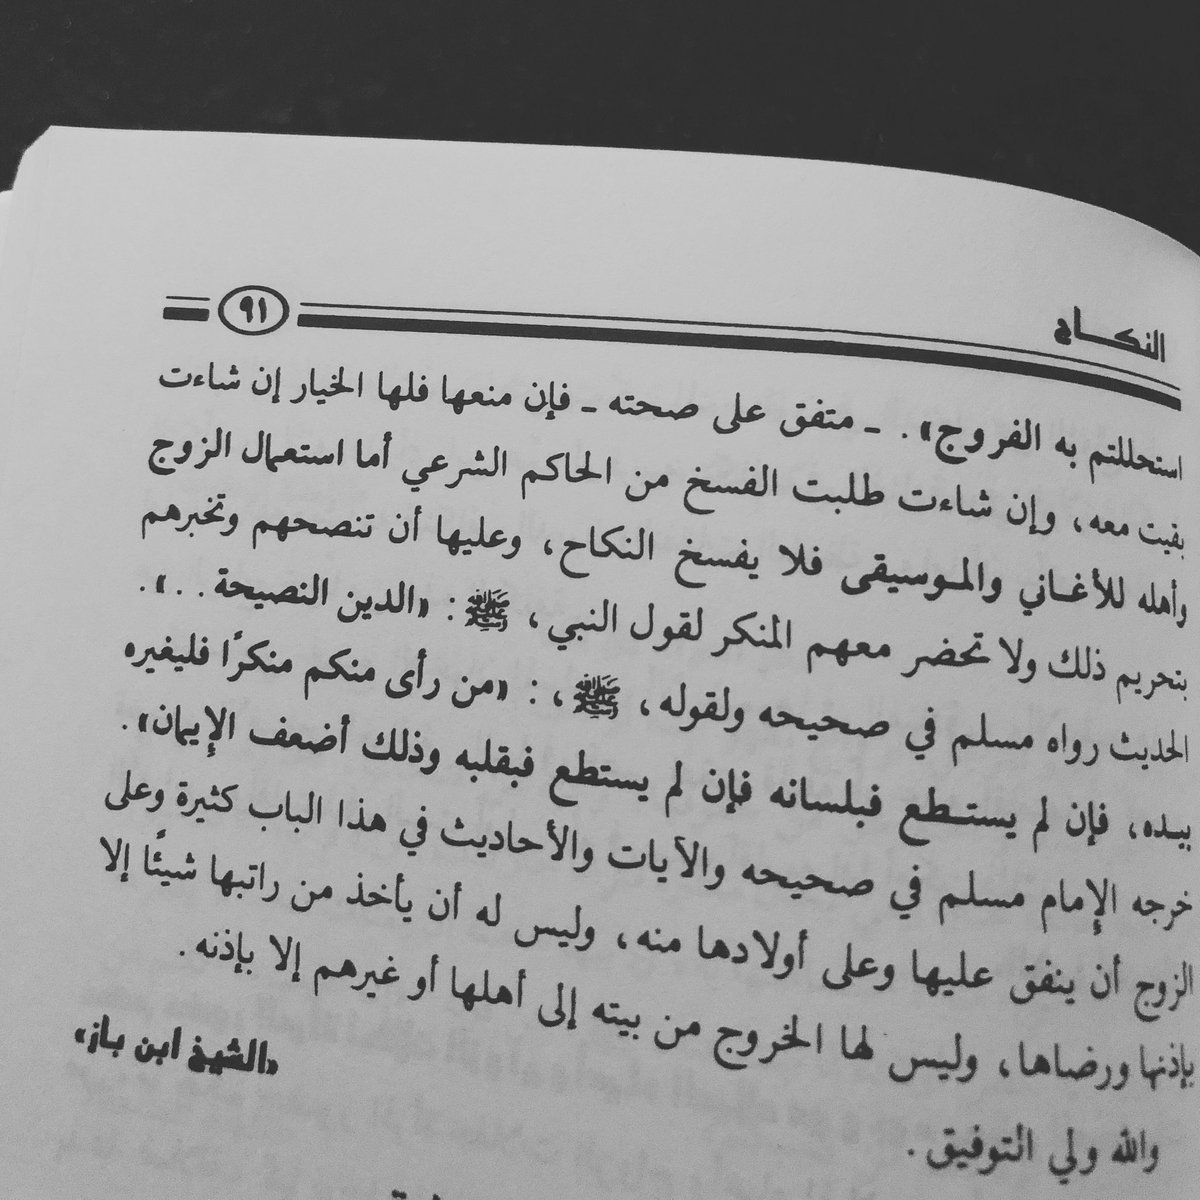 النكاح
٩١
استحللتم به الفروج». ـ متفق على صحته ـ فإن منعها فلها الخيار إن شاءت
بقيت معه، وإن شاءت طلبت الفسخ من الحاكم الشرعي أما استعمال الزوج
وأهله للأغاني والموسيقى فلا يفسخ النكاح، وعليها أن تنصحهم وتخبرهم
بتحريم ذلك ولا تحضر معهم المنكر لقول النبي، ﷺ: «الدين النصيحة...».
الحديث رواه مسلم في صحيحه ولقوله، ﷺ،: «من رأى منكم منكرًا فليغيره
بيده، فإن لم يستطع فبلسانه فإن لم يستطع فبقلبه وذلك أضعف الإيمان».
خرجه الإمام مسلم في صحيحه والآيات والأحاديث في هذا الباب كثيرة وعلى
الزوج أن ينفق عليها وعلى أولادها منه، وليس له أن يأخذ من راتبها شيئًا إلا
بإذنها ورضاها، وليس لها الخروج من بيته إلى أهلها أو غيرهم إلا بإذنه.
والله ولي التوفيق.
«الشيخ ابن باز»